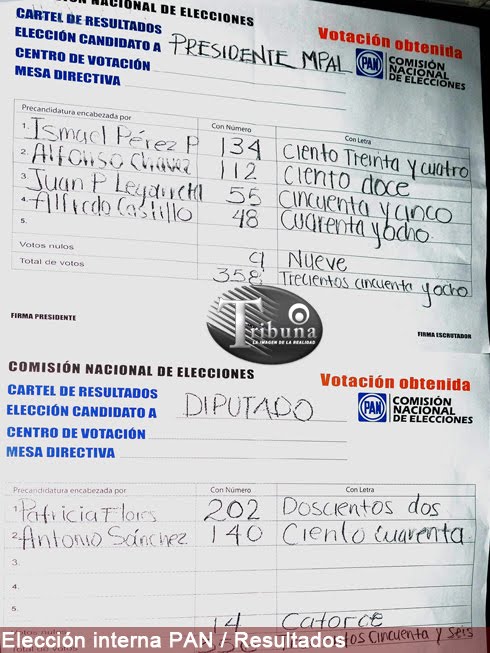 COMISIÓN NACIONAL DE ELECCIONES
CARTEL DE RESULTADOS
Votación obtenida
ELECCIÓN CANDIDATO A PRESIDENTE MPAL
CENTRO DE VOTACIÓN
PAN COMISIÓN NACIONAL DE ELECCIONES
MESA DIRECTIVA
Precandidatura encabezada por Con Número Con Letra
1. Ismael Pérez P 134 Ciento Treinta y cuatro
2. Alfonso Chavez 112 Ciento doce
3. Juan P Legarreta 55 Cincuenta y cinco
4. Alfredo Castillo 48 Cuarenta y ocho.
5.
Votos nulos 9 Nueve
Total de votos 358 Trecientos cincuenta y ocho
FIRMA PRESIDENTE
FIRMA ESCRUTADOR
Tribuna
LA IMAGEN DE LA REALIDAD
COMISIÓN NACIONAL DE ELECCIONES
CARTEL DE RESULTADOS
Votación obtenida
ELECCIÓN CANDIDATO A DIPUTADO
CENTRO DE VOTACIÓN
PAN COMISIÓN NACIONAL DE ELECCIONES
MESA DIRECTIVA
Precandidatura encabezada por Con Número Con Letra
1. Patricia Flores 202 Doscientos dos
2. Antonio Sánchez 140 Ciento cuarenta
3.
4.
5.
14 Catorce
Total de votos 356 Cincuenta y seis
Elección interna PAN / Resultados